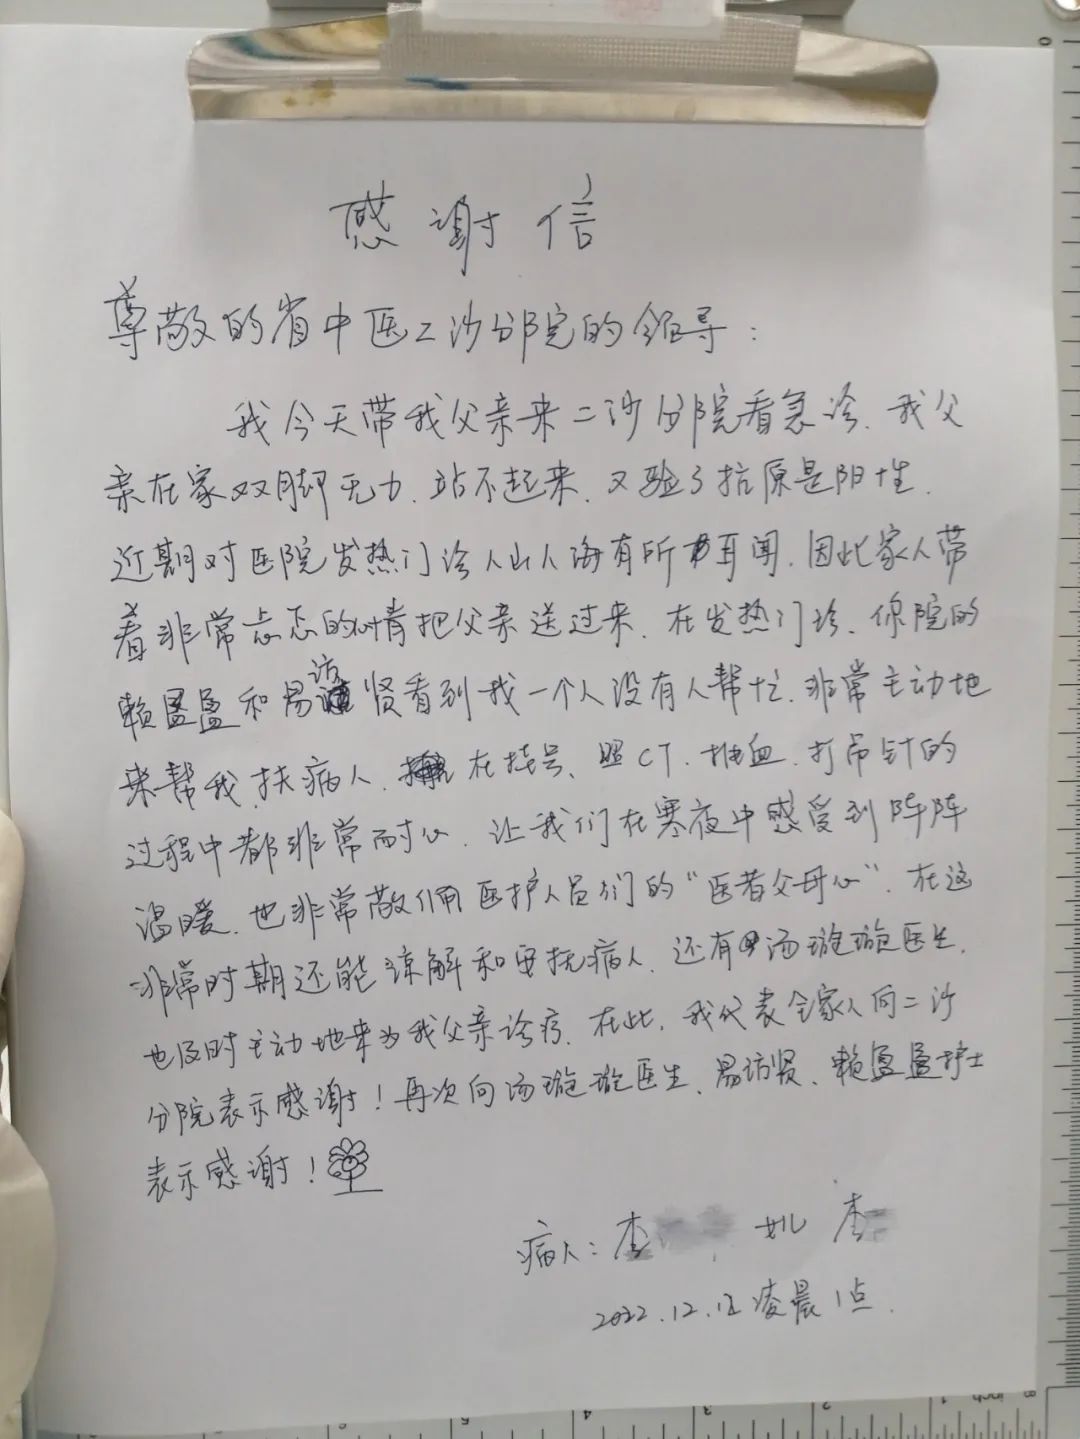 感谢信
尊敬的省中医二沙分院的领导:
我今天带我父亲来二沙分院看急诊.我父
亲在家双脚无力.站不起来.又验了抗原是阳性.
近期对医院发热门诊人山人海有所耳闻.因此家人带
着非常忐忑的心情把父亲送过来.在发热门诊、你院的
赖盈盈和易访贤看到我一个人没有人帮忙.非常主动地
来帮我.扶病人.在挂号、照CT.抽血.打吊针的
过程中都非常耐心.让我们在寒夜中感受到阵阵
温暖.也非常敬佩医护人员们的“医者父母心”.在这
非常时期还能谅解和安抚病人.还有汤璇璇医生.
也及时主动地来为我父亲诊疗.在此.我代表全家人向二沙
分院表示感谢!再次向汤璇璇医生、易访贤、赖盈盈护士
表示感谢!
病人:李 女儿 李
2022.12. 凌晨1点.
0
6
5
4
3
2
1
inch